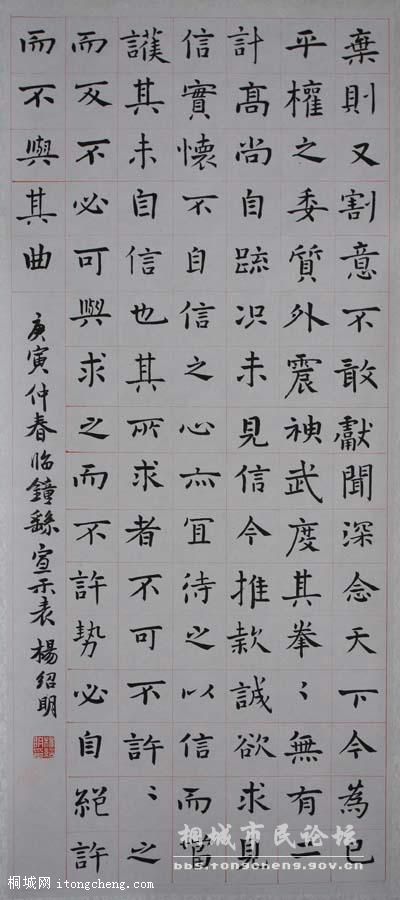 棄則又割意不敢獻聞深念天下今為已
平權之委質外震神武度其拳〻無有二
計高尚自疏況未見信今推款誠欲求見
信實懷不自信之心亦宜待之以信而當
護其未自信也其所求者不可不許〻之
而反不必可與求之而不許勢必自絕許
而不與其曲
庚寅仲春临鐘繇宣示表楊紹明
桐城市民论坛
bbs.tongcheng.gov.cn
桐城网 itongcheng.com